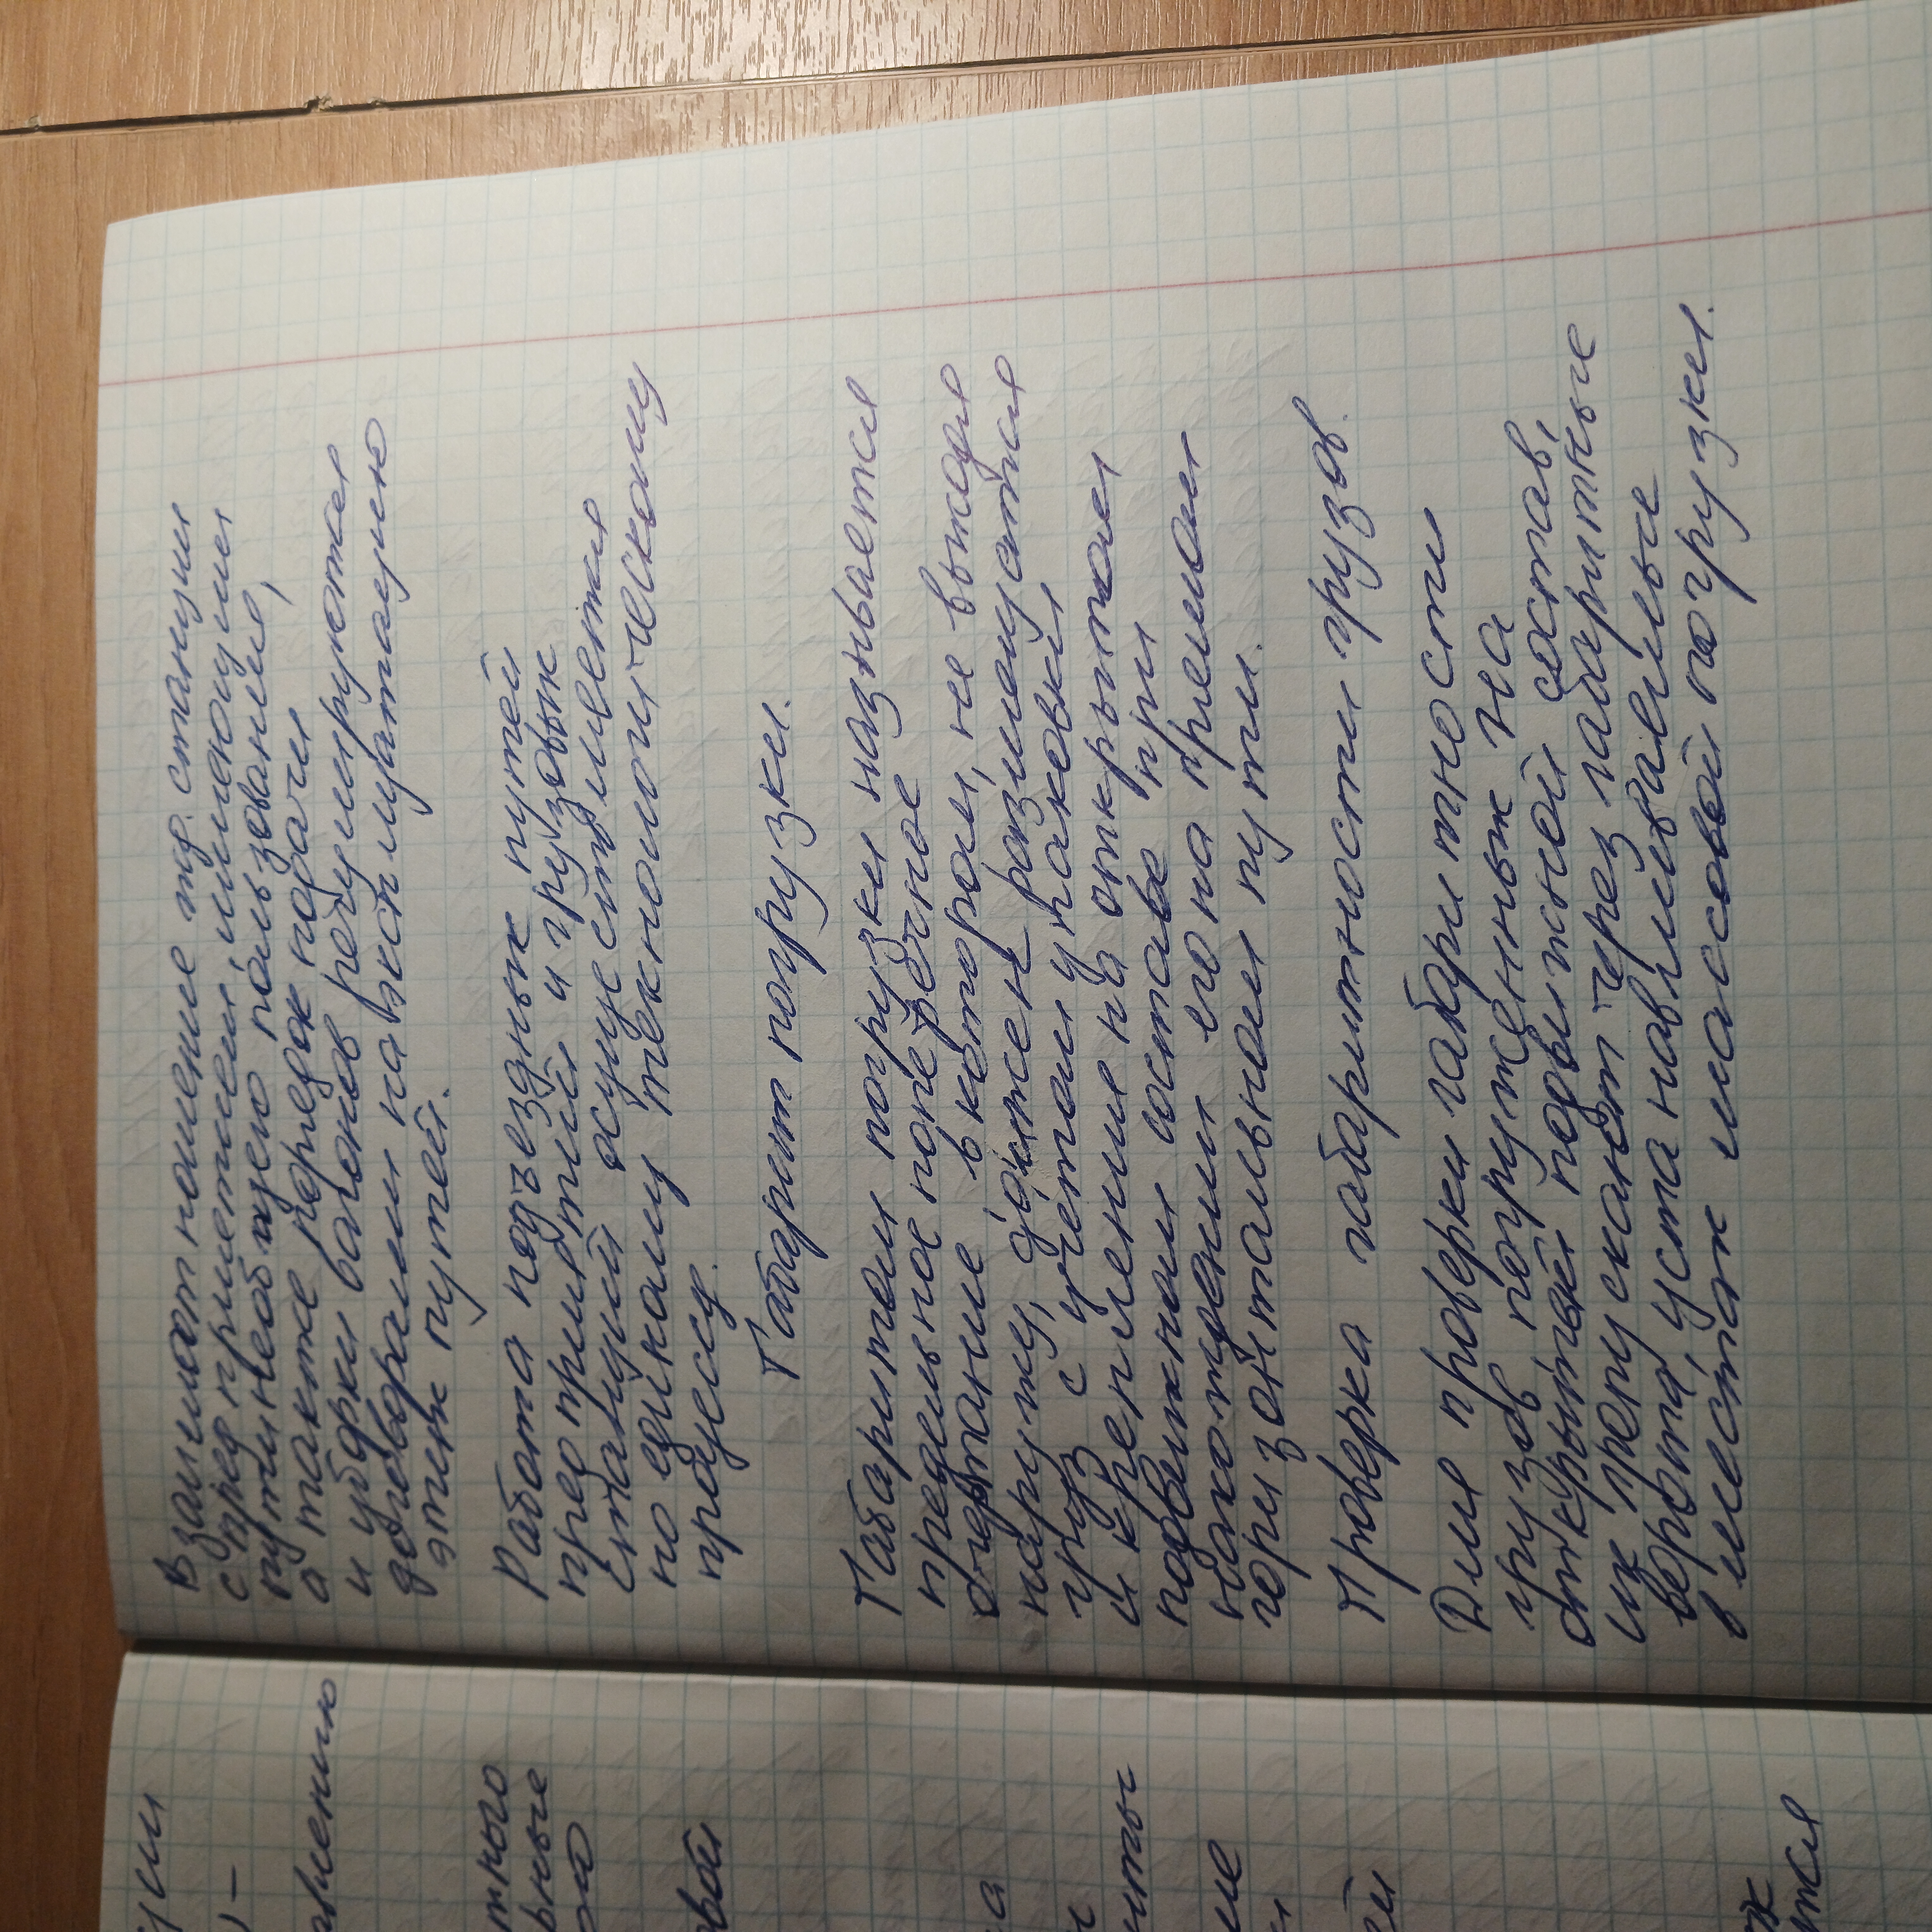 Взаимоотношение жд. станции
с предприятием, имеющими
пути необщего пользования,
а также порядок подачи
и уборки вагонов регулируются
договорами на эксплуатацию
этих путей.
Работа подъездных путей
предприятий и грузовых
станций осуществляется
по единому технологическому
процессу.
Габарит погрузки.
Габаритом погрузки называется
предельное поперечное
очертание в котором, не выходя
наружу, должен размещаться
груз с учётом упаковки
и крепления на открытом
подвижном составе при
нахождении его на прямом
горизонтальном пути.
Проверка габаритности грузов.
Для проверки габаритности
грузов погруженных на
открытый подвижной состав,
их пропускают через габаритные
ворота устанавливаемые
в местах массовой погрузки.
ции
влению
тного
рные
вой
а
нты
ие
ей
тся